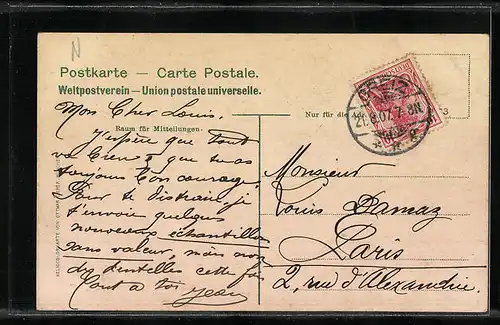 N
Postkarte — Carte Postale.
Weltpostverein — Union postale universelle.
Nur für die Adr
3
Raum für Mitteilungen.
GREIZ
21.8.07. 7-8N
Mon Cher Louis.
J'espère que tout
va bien & que tu as
toujours bon courage.
Pour te distraire, je
t'envoie quelques
nouveaux échantillons
sans valeur, mais non
des dentelles cette fois
Tout à toi Jean
Monsieur
Louis Damaz
Paris
2, rue d'Alexandrie.